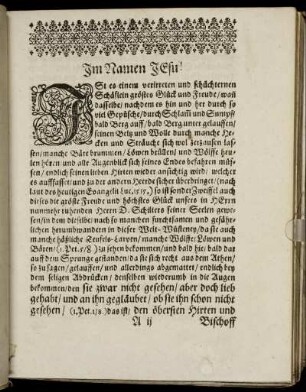 Im Namen JEsu!
ISt es einem verirreten und schüchternen
Schäflein gröstes Glück und Freude/ wañ
dasselbe/ nachdem es hin und her durch so
viel Gepüsche/ durch Schlam̃ und Sumpf/
bald Berg auff/ bald Berg unter gelauffen/
seinen Beltz und Wolle durch manche He-
cken und Sträuche sich wol zerzausen las-
sen/ manche Bäre brummen/ Löwen brüllen/ und Wölffe heu-
len hören und alle Augenblick sich seines Endes befahren müs-
sen/ endlich seinen lieben Hirten wieder ansichtig wird/ welcher
es aufffasset/ und zu der andern Heerde sicher überbringet/ (nach
laut des heutigen Evangelii Luc. 15/5.) so ist sonder Zweiffel auch
dieses die gröste Freude und höchstes Glück unsers in HErrn
nunmehr ruhenden Herrn D. Schelters seiner Seelen gewe-
sen/ in dem dieselbe/ nach so manchen furchtsamen und gefähr-
lichen herumbwandern in dieser Welt-Wüsteney/ da sie auch
manche häßliche Teufels-Larven/ manche Wölffe/ Löwen und
Bären/ (1. Pet. 5/8.) zu sehen bekommen/ und bald hie/ bald dar
auf dem Sprunge gestanden/ da sie sich recht aus dem Athen/
so zu sagen/ gelauffen/ und allerdings abgemattet/ endlich bey
dem seligen Abdrücken/ denselben wiederumb in die Augen
bekommen/ den sie zwar nicht gesehen/ aber doch lieb
gehabt/ und an ihn gegläubet/ ob sie ihn schon nicht
gesehen/ (1. Pet. 1/8.) das ist/ den öbersten Hirten und
A ij Bischoff